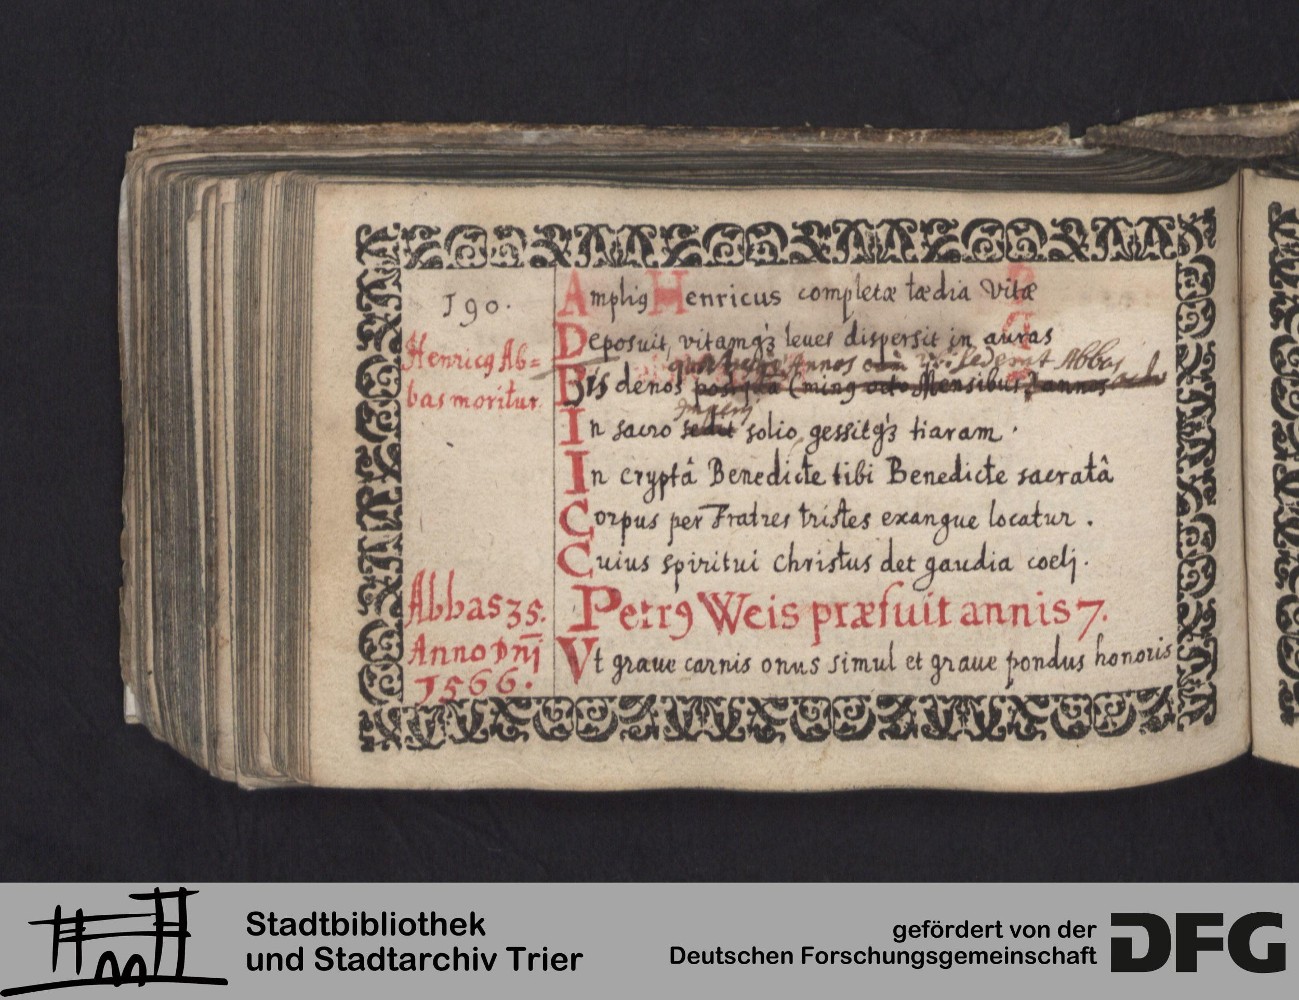 190.
Henricꝰ Ab=
bas moritur.
Abbas 35.
Anno Dnī
1566.
Ampliꝰ Henricus completæ tædia vitæ
Deposuit, vitamqꝫ leues dispersit in auras
Annos sederat Abbas
Bis denos postquā (minꝰ octo Mensibus) annos
In sacro sedit solio, gessitqꝫ tiaram.
In cryptâ Benedicte tibi Benedicte sacratâ
Corpus per Fratres tristes exangue locatur.
Cuius spiritui Christus det gaudia coelj.
Petrꝰ Weis præfuit annis 7.
Vt graue carnis onus simul et graue pondus honoris
Stadtbibliothek
und Stadtarchiv Trier
gefördert von der
Deutschen Forschungsgemeinschaft
DFG